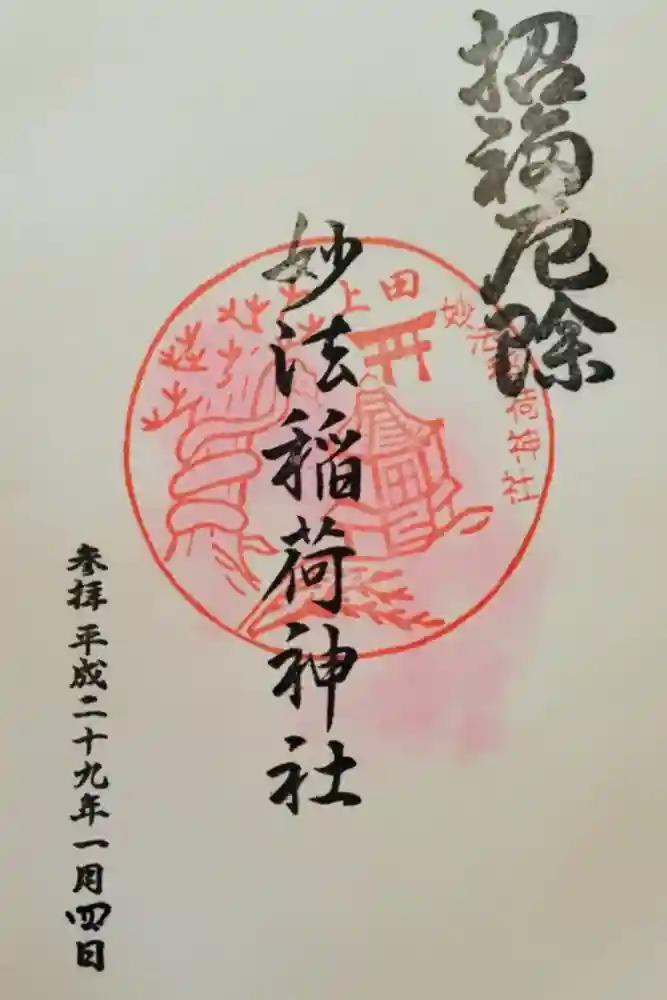 招福厄除
妙法稲荷神社
上田
妙法稲荷神社
参拝 平成二十九年一月四日